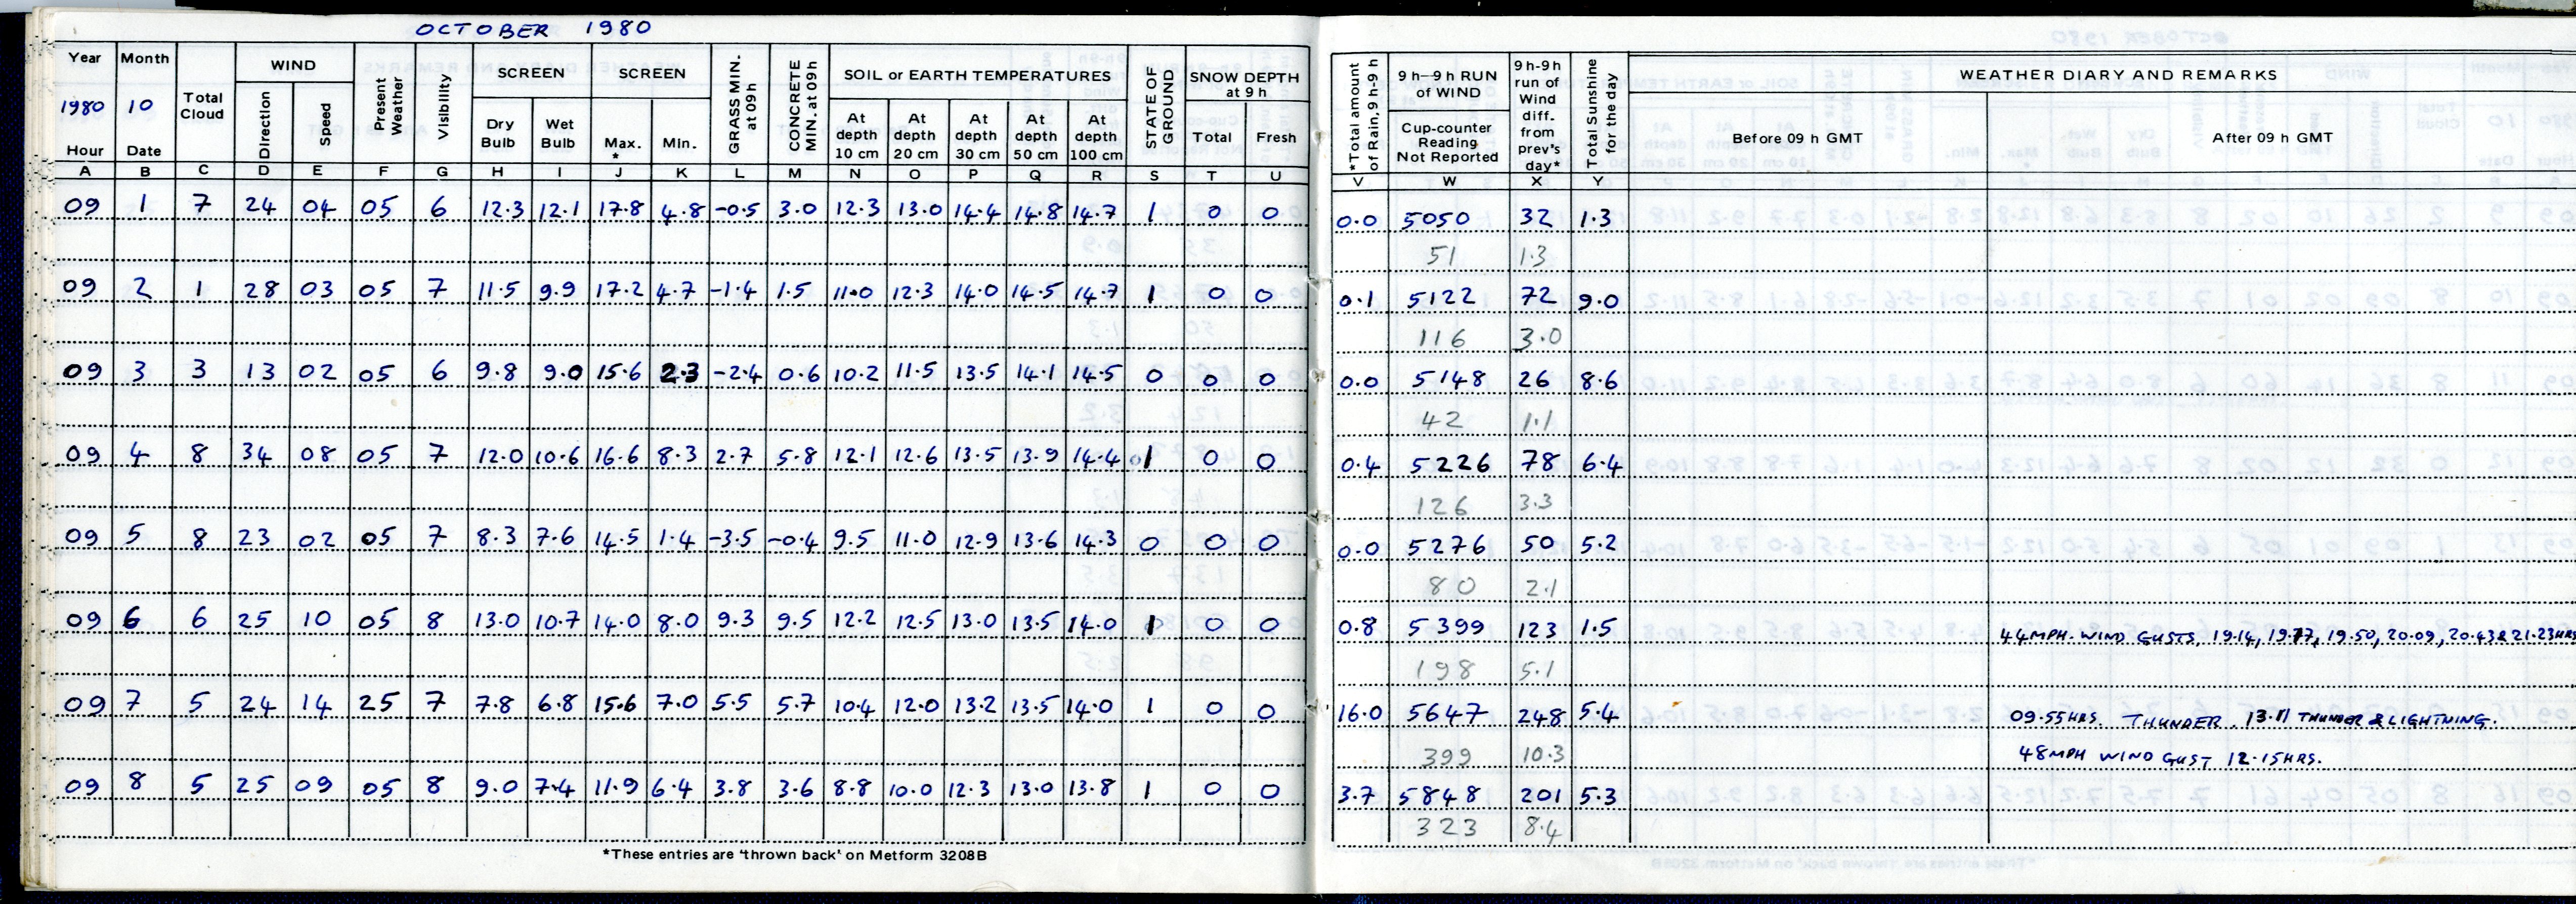 OCTOBER 1980
Year Month Total Cloud WIND Present Weather Visibility SCREEN SCREEN GRASS MIN. at 09 h CONCRETE MIN. at 09 h SOIL or EARTH TEMPERATURES STATE OF GROUND SNOW DEPTH at 9 h *Total amount of Rain, 9 h-9 h 9 h—9 h RUN of WIND 9 h-9h run of Wind diff. from prev's day* Total Sunshine for the day WEATHER DIARY AND REMARKS
1980 10 Direction Speed Dry Bulb Wet Bulb Max. * Min. At depth 10 cm At depth 20 cm At depth 30 cm At depth 50 cm At depth 100 cm Total Fresh Cup-counter Reading Not Reported Before 09 h GMT After 09 h GMT
Hour Date
A B C D E F G H I J K L M N O P Q R S T U V W X Y
09 1 7 24 04 05 6 12.3 12.1 17.8 4.8 -0.5 3.0 12.3 13.0 14.4 14.8 14.7 1 0 0 0.0 5050 32 1.3
51 1.3
09 2 1 28 03 05 7 11.5 9.9 17.2 4.7 -1.4 1.5 11.0 12.3 14.0 14.5 14.7 1 0 0 0.1 5122 72 9.0
116 3.0
09 3 3 13 02 05 6 9.8 9.0 15.6 2.3 -2.4 0.6 10.2 11.5 13.5 14.1 14.5 0 0 0 0.0 5148 26 8.6
42 1.1
09 4 8 34 08 05 7 12.0 10.6 16.6 8.3 2.7 5.8 12.1 12.6 13.5 13.9 14.4 1 0 0 0.4 5226 78 6.4
126 3.3
09 5 8 23 02 05 7 8.3 7.6 14.5 1.4 -3.5 -0.4 9.5 11.0 12.9 13.6 14.3 0 0 0 0.0 5276 50 5.2
80 2.1
09 6 6 25 10 05 8 13.0 10.7 14.0 8.0 9.3 9.5 12.2 12.5 13.0 13.5 14.0 1 0 0 0.8 5399 123 1.5 44MPH. WIND GUSTS, 19.14, 19.50, 20.09, 20.43 & 21.23HRS
198 5.1
09 7 5 24 14 25 7 7.8 6.8 15.6 7.0 5.5 5.7 10.4 12.0 13.2 13.5 14.0 1 0 0 16.0 5647 248 5.4 09.55HRS. THUNDER. 13.11 THUNDER & LIGHTNING.
399 10.3 48MPH WIND GUST 12.15HRS.
09 8 5 25 09 05 8 9.0 7.4 11.9 6.4 3.8 3.6 8.8 10.0 12.3 13.0 13.8 1 0 0 3.7 5848 201 5.3
323 8.4
*These entries are 'thrown back' on Metform 3208B